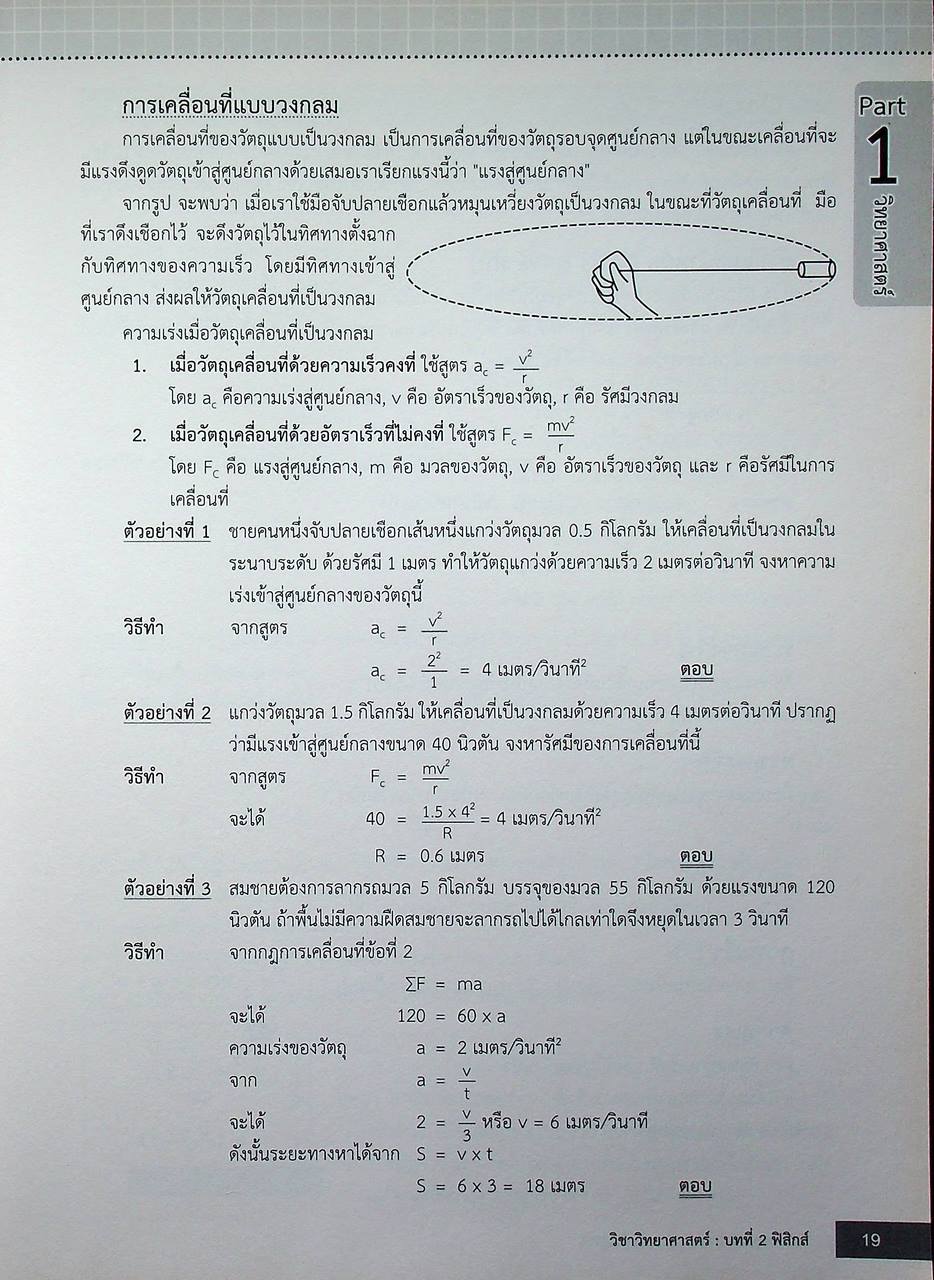 การเคลื่อนที่แบบวงกลม
การเคลื่อนที่ของวัตถุแบบเป็นวงกลม เป็นการเคลื่อนที่ของวัตถุรอบจุดศูนย์กลาง แต่ในขณะเคลื่อนที่จะ
มีแรงดึงดูดวัตถุเข้าสู่ศูนย์กลางด้วยเสมอเราเรียกแรงนี้ว่า "แรงสู่ศูนย์กลาง"
จากรูป จะพบว่า เมื่อเราใช้มือจับปลายเชือกแล้วหมุนเหวี่ยงวัตถุเป็นวงกลม ในขณะที่วัตถุเคลื่อนที่ มือ
ที่เราดึงเชือกไว้ จะดึงวัตถุไว้ในทิศทางตั้งฉาก
กับทิศทางของความเร็ว โดยมีทิศทางเข้าสู่
ศูนย์กลาง ส่งผลให้วัตถุเคลื่อนที่เป็นวงกลม
ความเร่งเมื่อวัตถุเคลื่อนที่เป็นวงกลม
1. เมื่อวัตถุเคลื่อนที่ด้วยความเร็วคงที่ ใช้สูตร a_c = v²/r
โดย a_c คือความเร่งสู่ศูนย์กลาง, v คือ อัตราเร็วของวัตถุ, r คือ รัศมีวงกลม
2. เมื่อวัตถุเคลื่อนที่ด้วยอัตราเร็วที่ไม่คงที่ ใช้สูตร F_c = mv²/r
โดย F_C คือ แรงสู่ศูนย์กลาง, m คือ มวลของวัตถุ, v คือ อัตราเร็วของวัตถุ และ r คือรัศมีในการ
เคลื่อนที่
ตัวอย่างที่ 1 ชายคนหนึ่งจับปลายเชือกเส้นหนึ่งแกว่งวัตถุมวล 0.5 กิโลกรัม ให้เคลื่อนที่เป็นวงกลมใน
ระนาบระดับ ด้วยรัศมี 1 เมตร ทำให้วัตถุแกว่งด้วยความเร็ว 2 เมตรต่อวินาที จงหาความ
เร่งเข้าสู่ศูนย์กลางของวัตถุนี้
วิธีทำ จากสูตร a_c = v²/r
a_c = 2²/1 = 4 เมตร/วินาที² ตอบ
ตัวอย่างที่ 2 แกว่งวัตถุมวล 1.5 กิโลกรัม ให้เคลื่อนที่เป็นวงกลมด้วยความเร็ว 4 เมตรต่อวินาที ปรากฏ
ว่ามีแรงเข้าสู่ศูนย์กลางขนาด 40 นิวตัน จงหารัศมีของการเคลื่อนที่นี้
วิธีทำ จากสูตร F_c = mv²/r
จะได้ 40 = 1.5 x 4²/R = 4 เมตร/วินาที²
R = 0.6 เมตร ตอบ
ตัวอย่างที่ 3 สมชายต้องการลากรถมวล 5 กิโลกรัม บรรจุของมวล 55 กิโลกรัม ด้วยแรงขนาด 120
นิวตัน ถ้าพื้นไม่มีความฝืดสมชายจะลากรถไปได้ไกลเท่าใดจึงหยุดในเวลา 3 วินาที
วิธีทำ จากกฎการเคลื่อนที่ข้อที่ 2
ΣF = ma
จะได้ 120 = 60 x a
ความเร่งของวัตถุ a = 2 เมตร/วินาที²
จาก a = v/t
จะได้ 2 = v/3 หรือ v = 6 เมตร/วินาที
ดังนั้นระยะทางหาได้จาก S = v x t
S = 6 x 3 = 18 เมตร ตอบ
วิชาวิทยาศาสตร์ : บทที่ 2 ฟิสิกส์ 19
Part
1
วิทยาศาสตร์